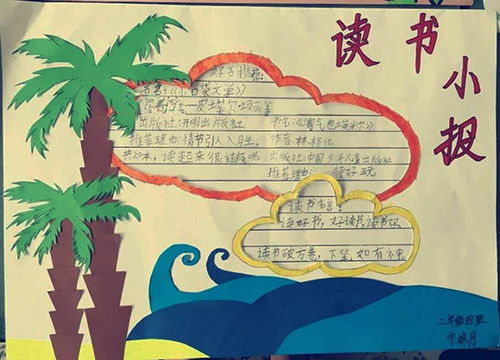 读书小报
好书推荐
书名:《小口袋文学》
出版社:开明出版社
推荐理由:情节引人入胜,
共20本,读起来很过瘾呢
书名:《淘气包
作者:林格伦
出版社:中国少年儿童出版社
推荐理由: 特好玩
读书名言:
读好书,好读书,读书好
读书破万卷,下笔如有神
二年级四班
月